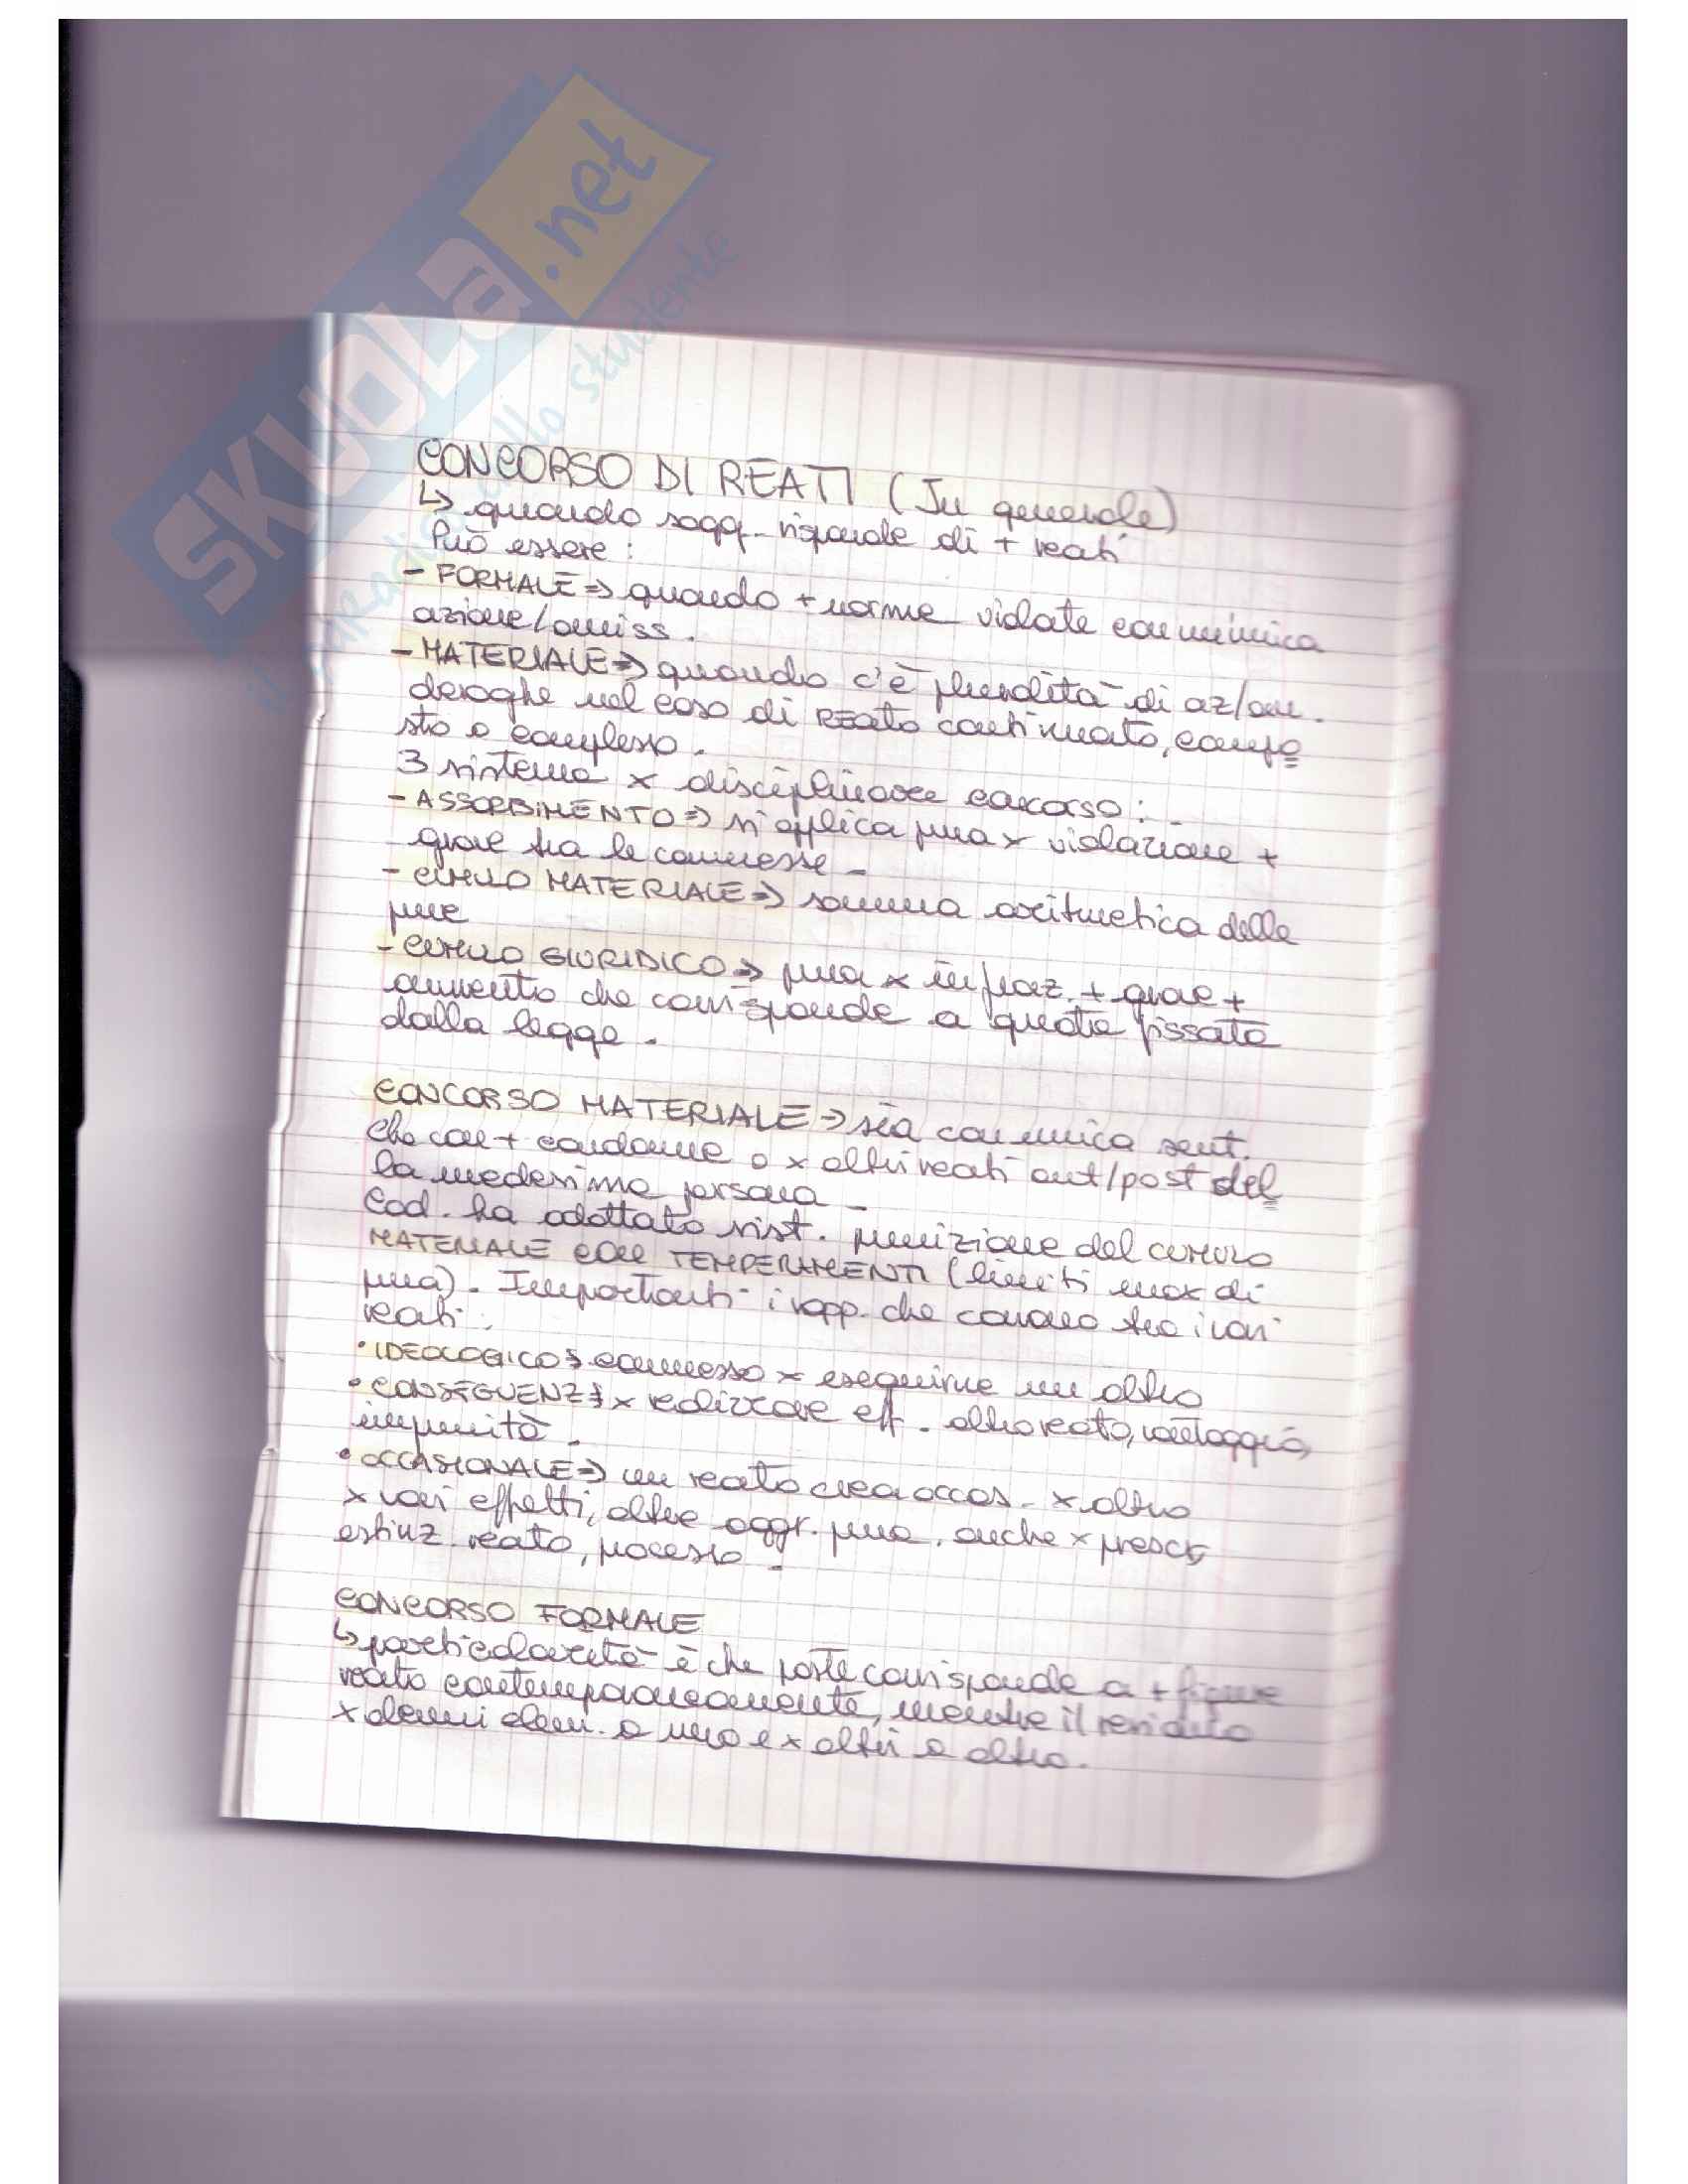 SKUOLA.net
il paradiso dello studente
CONCORSO DI REATI (In generale)
↳ quando sogg. risponde di + reati
Può essere:
- FORMALE => quando + norme violate con un'unica
azione/omiss.
- MATERIALE => quando c'è pluralità di az/om.
deroghe nel caso di REato continuato, compo
sto o complesso.
3 sistemi x disciplinare concorso:
- ASSORBIMENTO => si applica pena x violazione +
grave tra le commesse -
- CUMULO MATERIALE => somma aritmetica delle
pene
- CUMULO GIURIDICO => pena x infraz. + grave +
aumento che corrisponde a quota fissata
dalla legge.
CONCORSO MATERIALE -> sia con unica sent.
che con + condanne o x altri reati ant/post del
la medesima persona -
Cod. ha adottato sist. punizione del CUMULO
MATERIALE con TEMPERAMENTI (limiti max di
pena). Importanti i rapp. che corrono tra i vari
reati:
• IDEOLOGICO => commesso x eseguirne un altro
• CONSEGUENZ => x realizzare eff. altro reato, vantaggio,
impunità.
• OCCASIONALE => un reato crea occas. x altro
x vari effetti, oltre aggr. pena, anche x prescr,
estinz. reato, processo.
CONCORSO FORMALE
↳ particolarità è che parte corrisponde a + figure
reato contemporaneamente, mentre il residuo
x alcuni elem. a uno e x altri a altro.